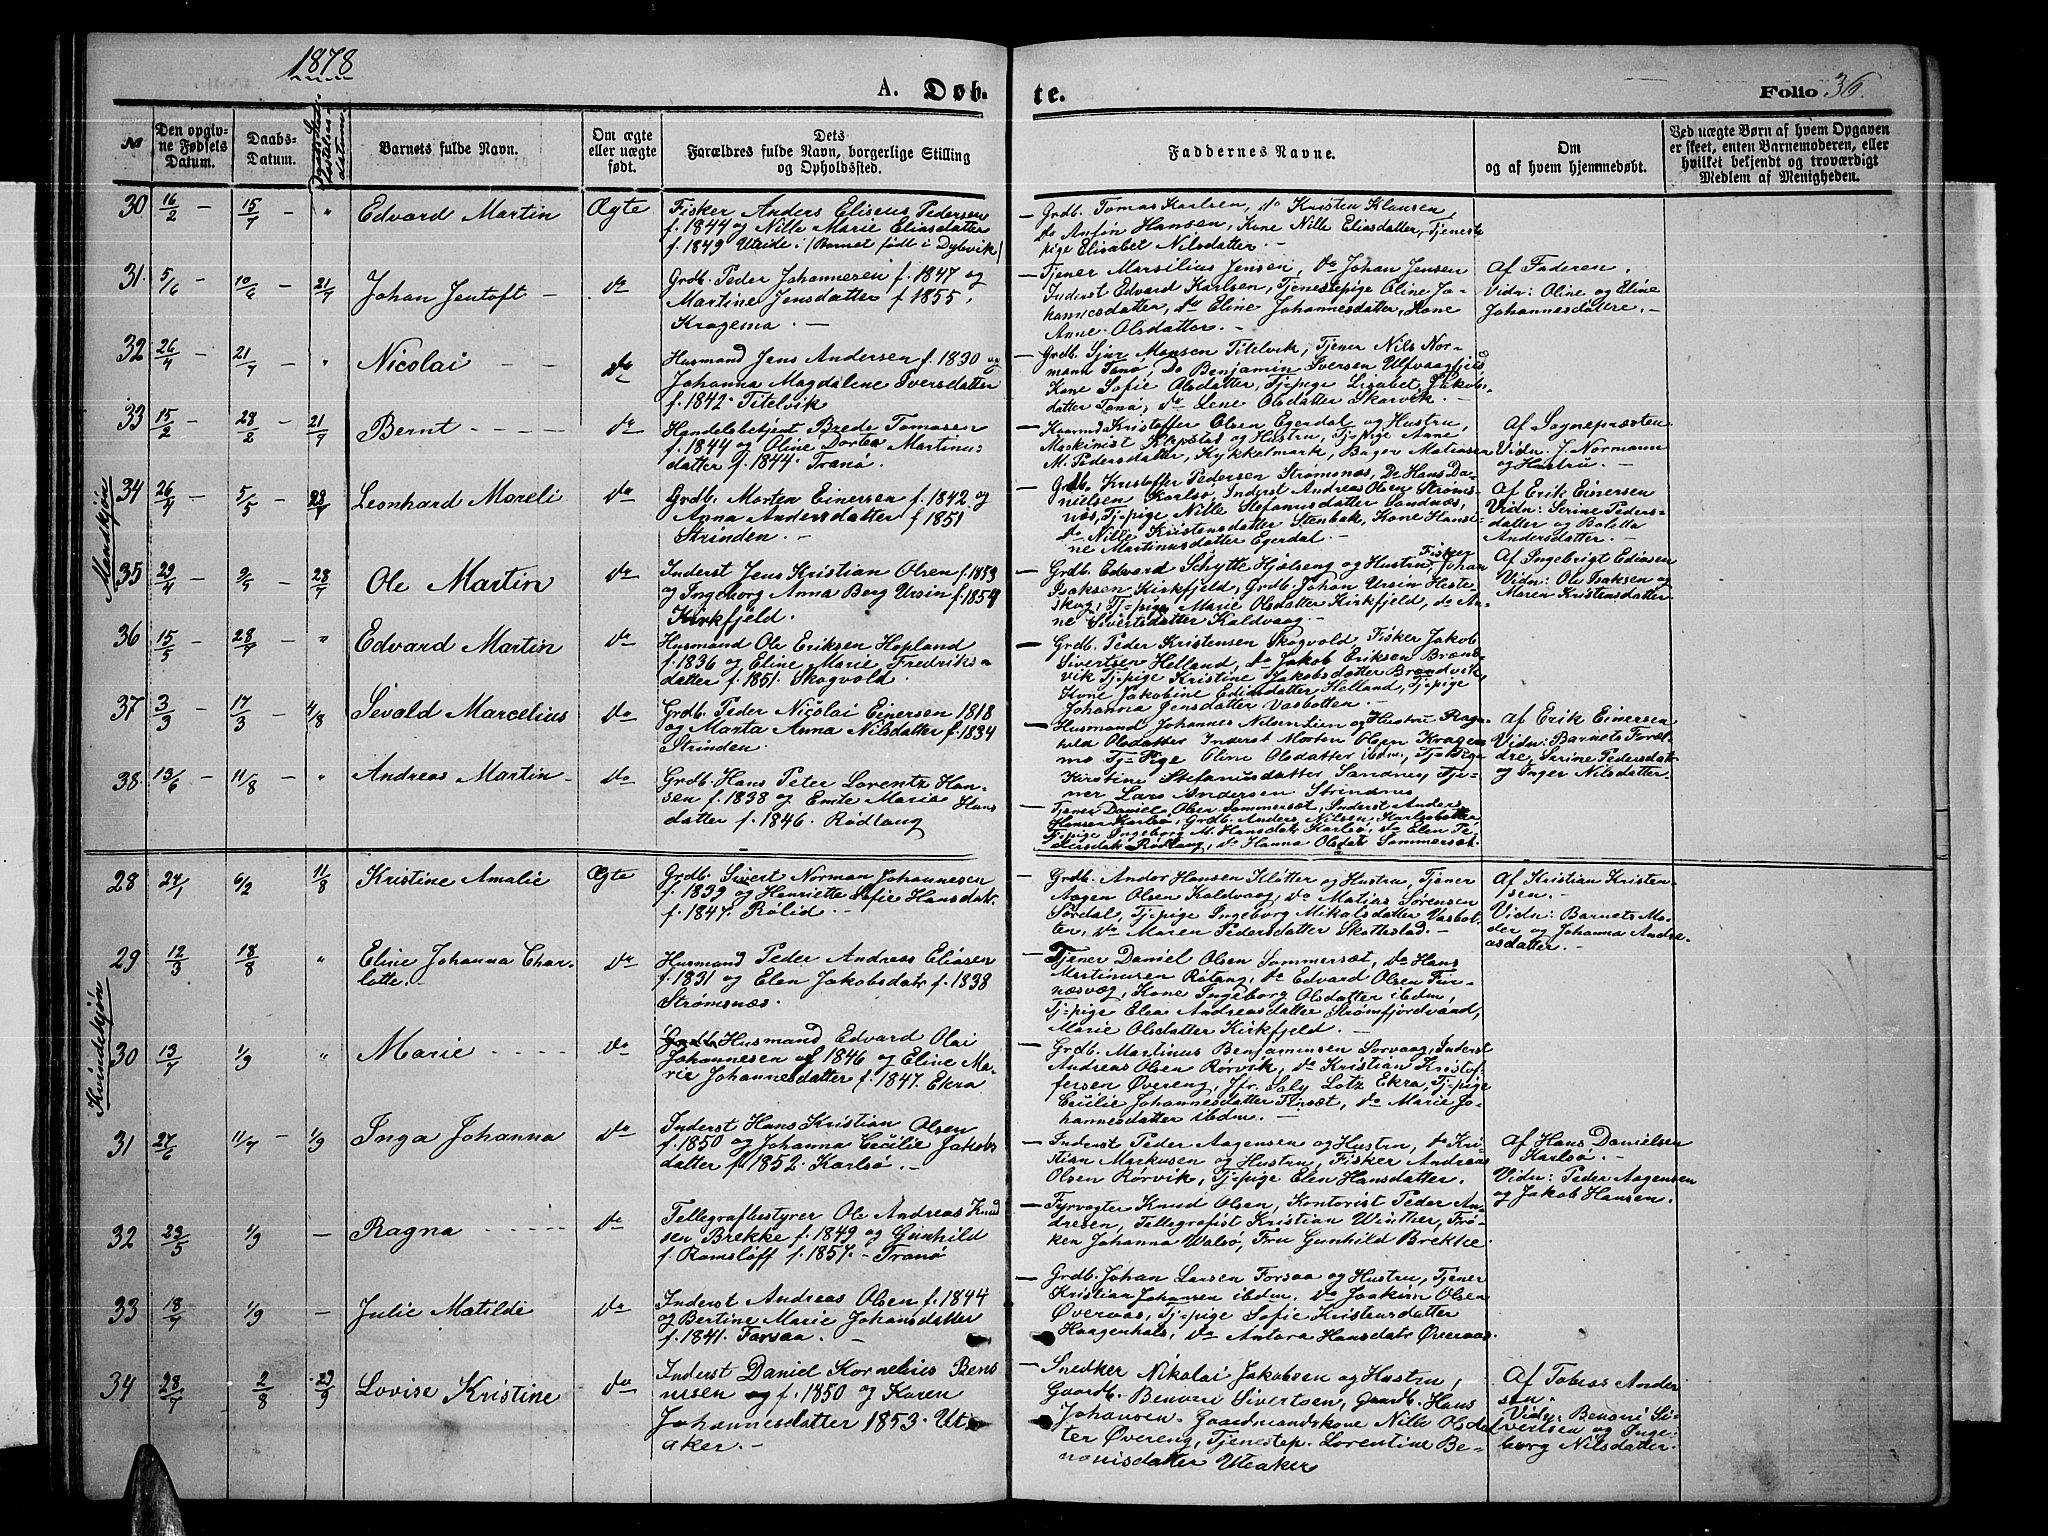 1878
A. Døb-
te.
Folio 36.
No
Den opgiv-
ne Fødsels
Datum.
Daabs-
Datum.
Barnets fulde Navn.
Om ægte
eller uægte
født.
Dets
Forældres fulde Navn, borgerlige Stilling
og Opholdssted.
Faddernes Navne.
Om
og af hvem hjemmedøbt.
Ved uægte Børn af hvem Opgaven
er skeet, enten Barnemoderen, eller
hvilket bekjendt og troværdigt
Medlem af Menigheden.
Mandskjøn
30 16/2 - 15/7 - " Edvard Martin Ægte
Fisker Anders Eliseus Pedersen
f. 1844 og Nille Marie Eliasdatter
f. 1849 Utride i (Barnet født i Dybvik)
- Grdb. Tomas Karlsen, do Kristen Klausen,
do Anfin Hansen, Kone Nille Eliasdatter, Tjeneste
pige Elisabet Nilsdatter. -
31. 5/6 - 10/6 - 21/7 Johan Jentoft - do
Grdb. Peder Johannesen f. 1847 og
Martine Jensdatter f 1855.
Kragemo. -
- Tjener Marsilius Jensen, do Johan Jensen
Inderst Edvard Karlsen, Tjenestepige Oline Jo-
hannesdatter, do Eline Johannesdatter, Kone
Anne Olsdatter. -
Af Faderen.
Vidn: Oline og Eline
Johannesdattre. -
32 26/4 - 21/7 " Nicolai - - do
Husmand Jens Andersen f. 1830 og
Johanna Magdalene Iversdatter
f. 1842. Titelvik
- Grdb. Sjur Monsen Titelvik, Tjener Nils Nor-
mann Tanø, Do Benjamin Iversen Ulfvaagfjeld,
Kone Sofie Olsdatter, Tj-pige Lisabet Jakobs-
datter Tanø, do Lene Olsdatter Skarvik. -
33 15/2 - 28/2 21/7 Bernt - - - - do
Handelsbetjent Brede Tomasen
f. 1844 og Oline Dortea Martinus-
datter f. 1844. Tranø.
- Kaarmd Kristoffer Olsen Egerdal og Hustru,
Maskinist Kapstad og Hustru, Tj-pige Anne
M. Pedersdatter, Kykkelmark, Bager Matiasen
Af Sognepræsten
Vidn. J. Normann
og Hustru. -
34 26/4 - 5/5 28/7 Leonhard Moreli do
Grdb. Morten Einersen f. 1842 og
Anna Andersdatter f 1851
Strinden. -
- Grdb. Kristoffer Pedersen Strømsnæs, Do Hans Da-
nielsen Karlsø, Inderst Andreas Olsen Strøms-
næs, Tj-pige Nille Stefanusdatter Sandnæs,
do Nille Kristensdatter Stenbak, Kone Hansi-
ne Martinusdatter Egerdal. -
Af Erik Einersen
Vidn: Serine Peders-
datter og Boletta
Andersdatter. -
35 29/4 - 9/5 - 28/7 Ole Martin do
Inderst Jens Kristian Olsen f. 1853
og Ingeborg Anna Berg Ursin f. 1854
Kirkfjeld.
- Grdb. Edvard Schytte Hjelseng og Hustru, Fisker Johan
Isaksen Kirkfjeld, Grdb. Johan Ursin Heste-
skog, Tj-pige Marie Olsdatter Kirkfjeld, do An-
ne Sivertsdatter Kaldvaag. -
Af Ingebrigt Ediasen
Vidn: Ole Isaksen og
Maren Kristensdatter
36 15/5 - 28/7 - " Edvard Martin do
Husmand Ole Eriksen Hopland
f. 1836 og Eline Marie Fredriks-
datter f. 1851. Skogvold.
- Grdb. Peder Kristensen Skogvold Fisker Jakob
Sivertsen Helland, do Jakob Eriksen Brænd-
vik Tj-pige Kristine Jakobsdatter Brændvik,
Kone Jakobine Ediasdatter Helland, Tj-pige
Johanna Jensdatter Vasbotten. -
37 3/3 - 17/3 - 4/8 Sevald Marcelius do
Grdb. Peder Nicolai Einersen 1818
og Marta Anna Nilsdatter f. 1834
Strinden.
- Husmand Johannes Nilsen Lien og Hustru Rag-
hild Olsdatter Inderst Morten Olsen Kragen
mo Tj-Pige Oline Olsdatter ibdm, Tj-Pige
Kirstine Stefanusdatter Sandnes, Tje-
ner Lars Andersen Strindnes
Af Erik Einersen
Vidn: Barnets Foræl-
dre, Serine Pedersdatter
og Inger Nilsdatter
38. 13/6 - 11/8 - " Andreas Martin - do
Grdb. Hans Peter Lorentz Han-
sen f. 1838 og Emte Maria Hans
datter f. 1846. Rødlaug
- Tjener Daniel Olsen Sommersæt, Inderst Anders
Hansen Karlsø, Grdb. Anders Nilsen, Karlsøbotten,
Tj-pige Ingeborg M. Hansdatr Karlsø, do Elen Pe-
dersdatr Rødlaug, do Hanna Olsdatr Sommersæt.
Kvindekjøn
28 24/1 6/2 11/8 Kristine Amalie Ægte
Grdb. Sivert Norman Johannesen
f. 1839 og Henriette Sofie Hansdatr
f. 1847. Rølid. -
- Grdb. Andor Hansen Kløtter og Hustru, Tjener
Aagen Olsen Kaldvaag, do Matias Sørensen
Sørdal, Tj-pige Ingeborg Mikalsdatter Vasbot-
ten, do Maren Pedersdatter Skottestad. -
Af Kristian Kristen-
sen. -
Vidn: Barnets Mo-
der og Johanna Andre-
asdatter. -
29 12/3 18/8 " Eline Johanna Char-
lotte. - do
Husmand Peder Andreas Eliasen
f. 1831 og Elen Jakobsdatr f. 1838
Strømsnæs.
- Tjener Daniel Olsen Sommersæt, do Hans
Martinusen Røtang, do Edvard Olsen Fin-
næsvæg, Kone Ingeborg Olsdatter ibdm,
Tj-pige Elea Andreasdatter Strømfjordvand,
Marie Olsdatter Kirkfjeld. -
30 13/7 1/9 " Marie - - - - do
Husmand Edvard Olai
Johannesen f 1846 og Eline Ma-
rie Johannesdatter f. 1847. Ekra
- Grdb. Martinus Benjaminsen Sorvaag, Inderst
Andreas Olsen Rørvik, do Kristian Kristof-
fersen Øvereng, Jfr. Saly Lotz Ekra, Tj-pige
Cecilie Johannesdatter Finsæt, do Marie Jo-
hannesdatter ibdm. -
31 27/6 11/7 - 1/9 Inga Johanna do
Inderst Hans Kristian Olsen
f. 1850 og Johanna Cecilie Jakobs
datter f 1852. Karlsø. -
- Inderst Peder Aagensen og Hustru, do Kri-
stian Markusen og Hustru, Fisker Andreas
Olsen Rørvik, Tj-pige Elen Hansdatter.
Af Hans Danielsen
Karlsø. -
Vidn: Peder Aagensen
og Jakob Hansen.
32 23/5 1/9 - Ragna - - - - do
Tellegrafbestyrer Ole Andreas Knud
sen Brekke f. 1849 og Gunhild
f. Ramslöff f. 1857. - Tranø
- Fyrvogter Knud Olsen, Kontorist Peder An-
dresen, Tellegrafist Kristian Winther, Frø-
ken Johanna Walsø, Fru Gunhild Brekke.
33 18/7 1/9 - Julie Matilde do
Inderst Andreas Olsen f. 1844
og Bertine Marie Johansdatter
f. 1841. Forsaa. -
- Grdb. Johan Larsen Forsaa og Hustru, Tjener
Kristian Johansen ibdem. do Joakim Olsen
Øveraas, Tj-pige Sofie Kristensdatter
Haagenhals, do Antora Hansdatr Øveraas.
34 28/7 2/8 29/9 Lovise Kristine do
Inderst Daniel Kornelius Beno
nisen f. 1850 og Karen
Johannesdatter 1853. Ut
aker. -
- Snedker Nikolai Jakobsen og Hustru,
Gaardb. Benoni Sivertsen, Gaardb. Hans
Johansen. Gaardmandskone Nille Olsdat
ter Øvereng, Tjenestep. Lorentine Be-
nonisdatter Uteaker
Af Tobias Ander
sen.
Vidn: Benoni Si-
vertsen og Inge-
borg Nilsdatter.